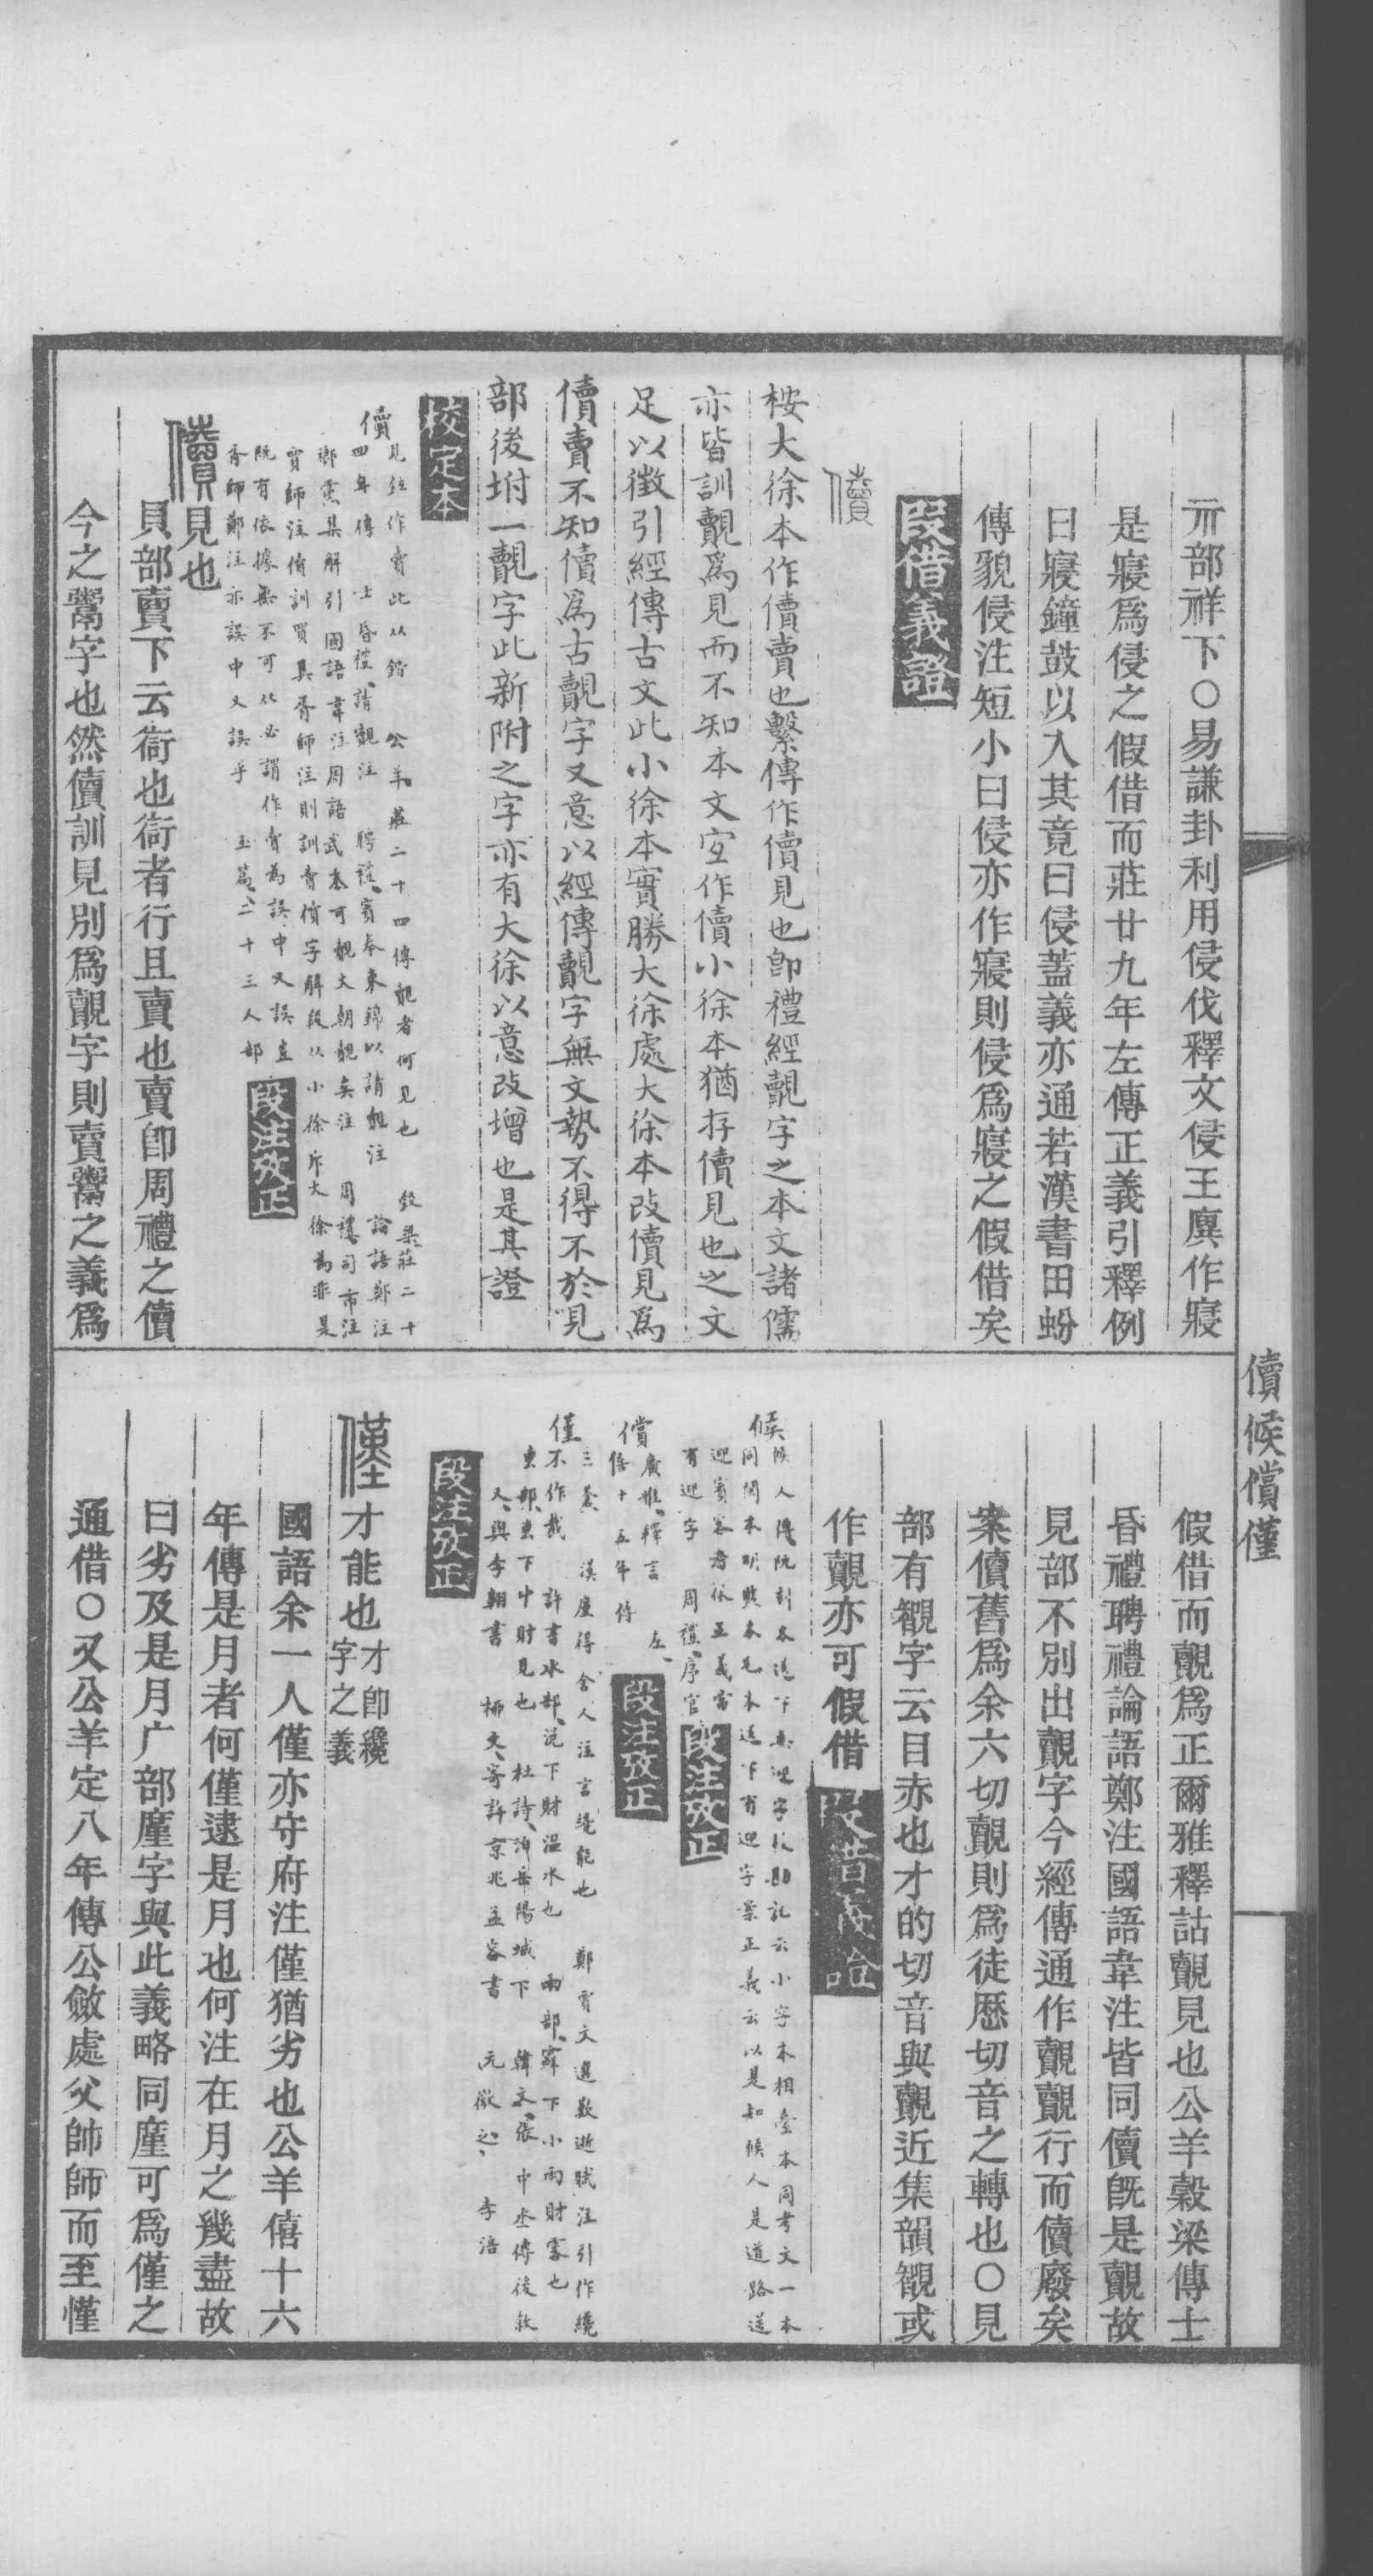 示部祥下○易謙卦利用侵伐釋文侵王廙作寢
是寢爲侵之假借而莊廿九年左傳正義引釋例
曰寢鐘鼓以入其竟曰侵蓋義亦通若漢書田蚡
傳貌侵注短小曰侵亦作寢則侵爲寢之假借矣
段借義證
儥
桉大徐本作儥賣也繫傳作儥見也卽禮經覿字之本文諸儒
亦皆訓覿爲見而不知本文宐作儥小徐本猶存儥見也之文
足以徵引經傳古文此小徐本實勝大徐處大徐本改儥見爲
儥賣不知儥爲古覿字又意以經傳覿字無文勢不得不於見
部後坿一覿字此新附之字亦有大徐以意改增也是其證
校定本
儥
見鉉作賣此从鍇 公羊莊二十四傳覿者何見也 穀梁莊二十
四年傳 士昏禮請覿注 聘禮賓奉束錦以請覿注 論語鄭注
鄉黨集解引 國語韋注周語武 可覿文朝覿矣注 周禮司市注
賈師注儥訓買其胥師注則訓賣儥字解段从小徐斥大徐爲非是
既有依據無不可从必謂作賣爲誤中又誤
胥師鄭注亦誤中又誤乎 玉篇二十三人部
段注攷正
儥見也
貝部賣下云衒也衒者行且賣也賣卽周禮之儥
今之鬻字也然儥訓見別爲覿字則賣鬻之義爲
儥候償僅
假借而覿爲正爾雅釋詁覿見也公羊穀梁傳士
昏禮聘禮論語鄭注國語韋注皆同儥旣是覿故
見部不別出覿字今經傳通作覿覿行而儥廢矣
案儥舊爲余六切覿則爲徒歷切音之轉也○見
部有覾字云目赤也才的切音與覿近集韻覾或
作覿亦可假借
段借義證
候
候人傳阮刻本送下無迎字校勘記云小字本相臺本同考文一本
同閩本明監本毛本送下有迎字案正義云以是知候人是道路送
迎賓客者依正義當
有迎字 周禮序官
段注攷正
償
廣雅釋言 左
僖十五年傳
段注攷正
僅
三蒼 漢 得舍人注言纔能也 鄭 文選歎逝賦注引作纔
不作裁 許書水部涗下財溫水也 雨部 下小雨財零也
叀部叀下中財見也 杜詩泊岳陽城下 韓文張中丞傳後敘
又與李翱書 柳文寄許京兆孟容書 元微之 李涪
段注攷正
僅才能也才卽纔字之義
國語余一人僅亦守府注僅猶劣也公羊僖十六
年傳是月者何僅逮是月也何注在月之幾盡故
曰劣及是月广部廑字與此義略同廑可爲僅之
通借○又公羊定八年傳公斂處父帥師而至慬